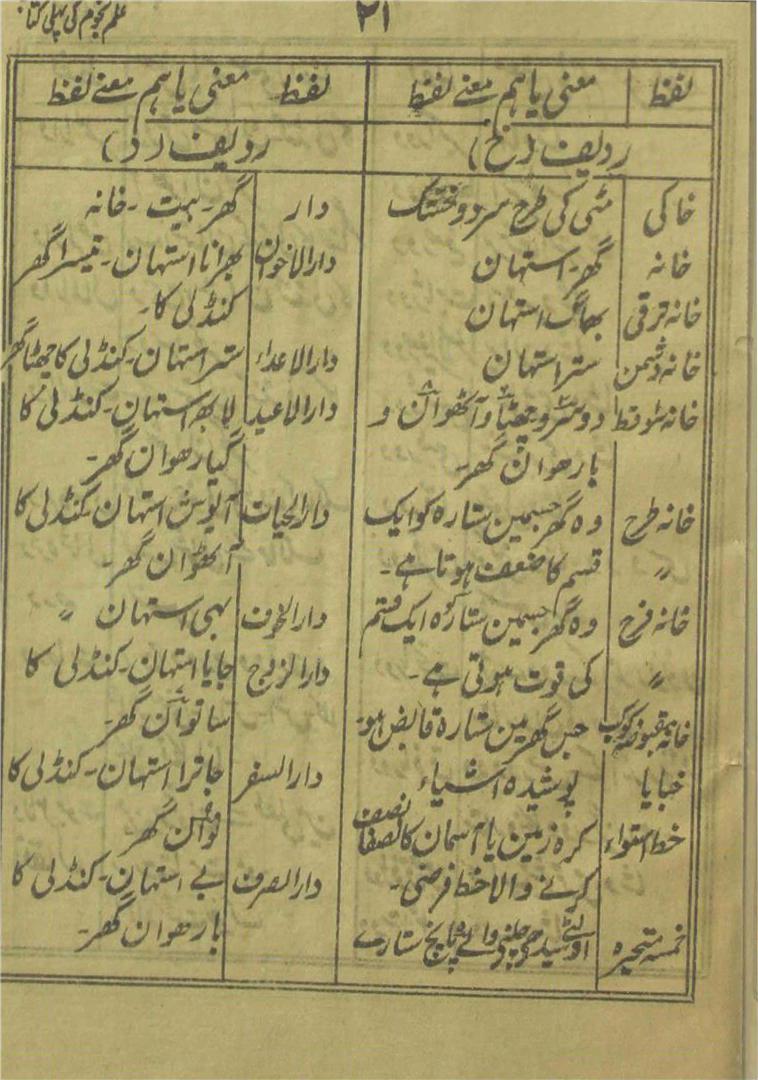 علم نجوم کی پہلی کتاب
۲۱
لفظ معنی یا ہم معنے لفظ
ردیف (خ)
خاکی مٹی کی طرح سرد و خشک
خانہ گھر۔ استھان
خانہ ترقی بھاگ استھان
خانہ دشمن ستر استھان
خانہ سوقط دوسرو چھٹا و آٹھوان و
بارھوان گھر۔
خانہ طرح وہ گھر جسمین ستارہ کو ایک
〃 قسم کا ضعف ہوتا ہے۔
خانہ فرح وہ گھر جسمین ستارہ کو ایک قسم
〃 کی قوت ہوتی ہے۔
خانہ مقبوضہ کوکب جس گھر مین ستارہ قابض ہو۔
خبایا پوشیدہ اشیاء
خط استواء کرہ زمین یا آسمان کا نصفا نصف
کرنے والا خط فرضی۔
خمسہ متحیرہ اولٹے سیدھے چلنے والے پانچ ستارے
لفظ معنی یا ہم معنے لفظ
ردیف (د)
دار گھر۔ بیت۔ خانہ
دارالاخوان بھراتا استھان۔ تیسرا گھر
کنڈلی کا۔
دارالاعداء ستر استھان۔ کنڈلی کا چھٹا گھر
دارالاعید لابھ استھان۔ کنڈلی کا
گیارھوان گھر۔
دارالحیات آیوش استھان۔ کنڈلی کا
آٹھوان گھر۔
دارالخوف بہی استھان 〃
دارالزوج جایا استھان۔ کنڈلی کا
ساتوان گھر۔
دارالسفر جاترا استھان۔ کنڈلی کا
نوان گھر۔
دارالصرف بے استھان۔ کنڈلی کا
بارھوان گھر۔